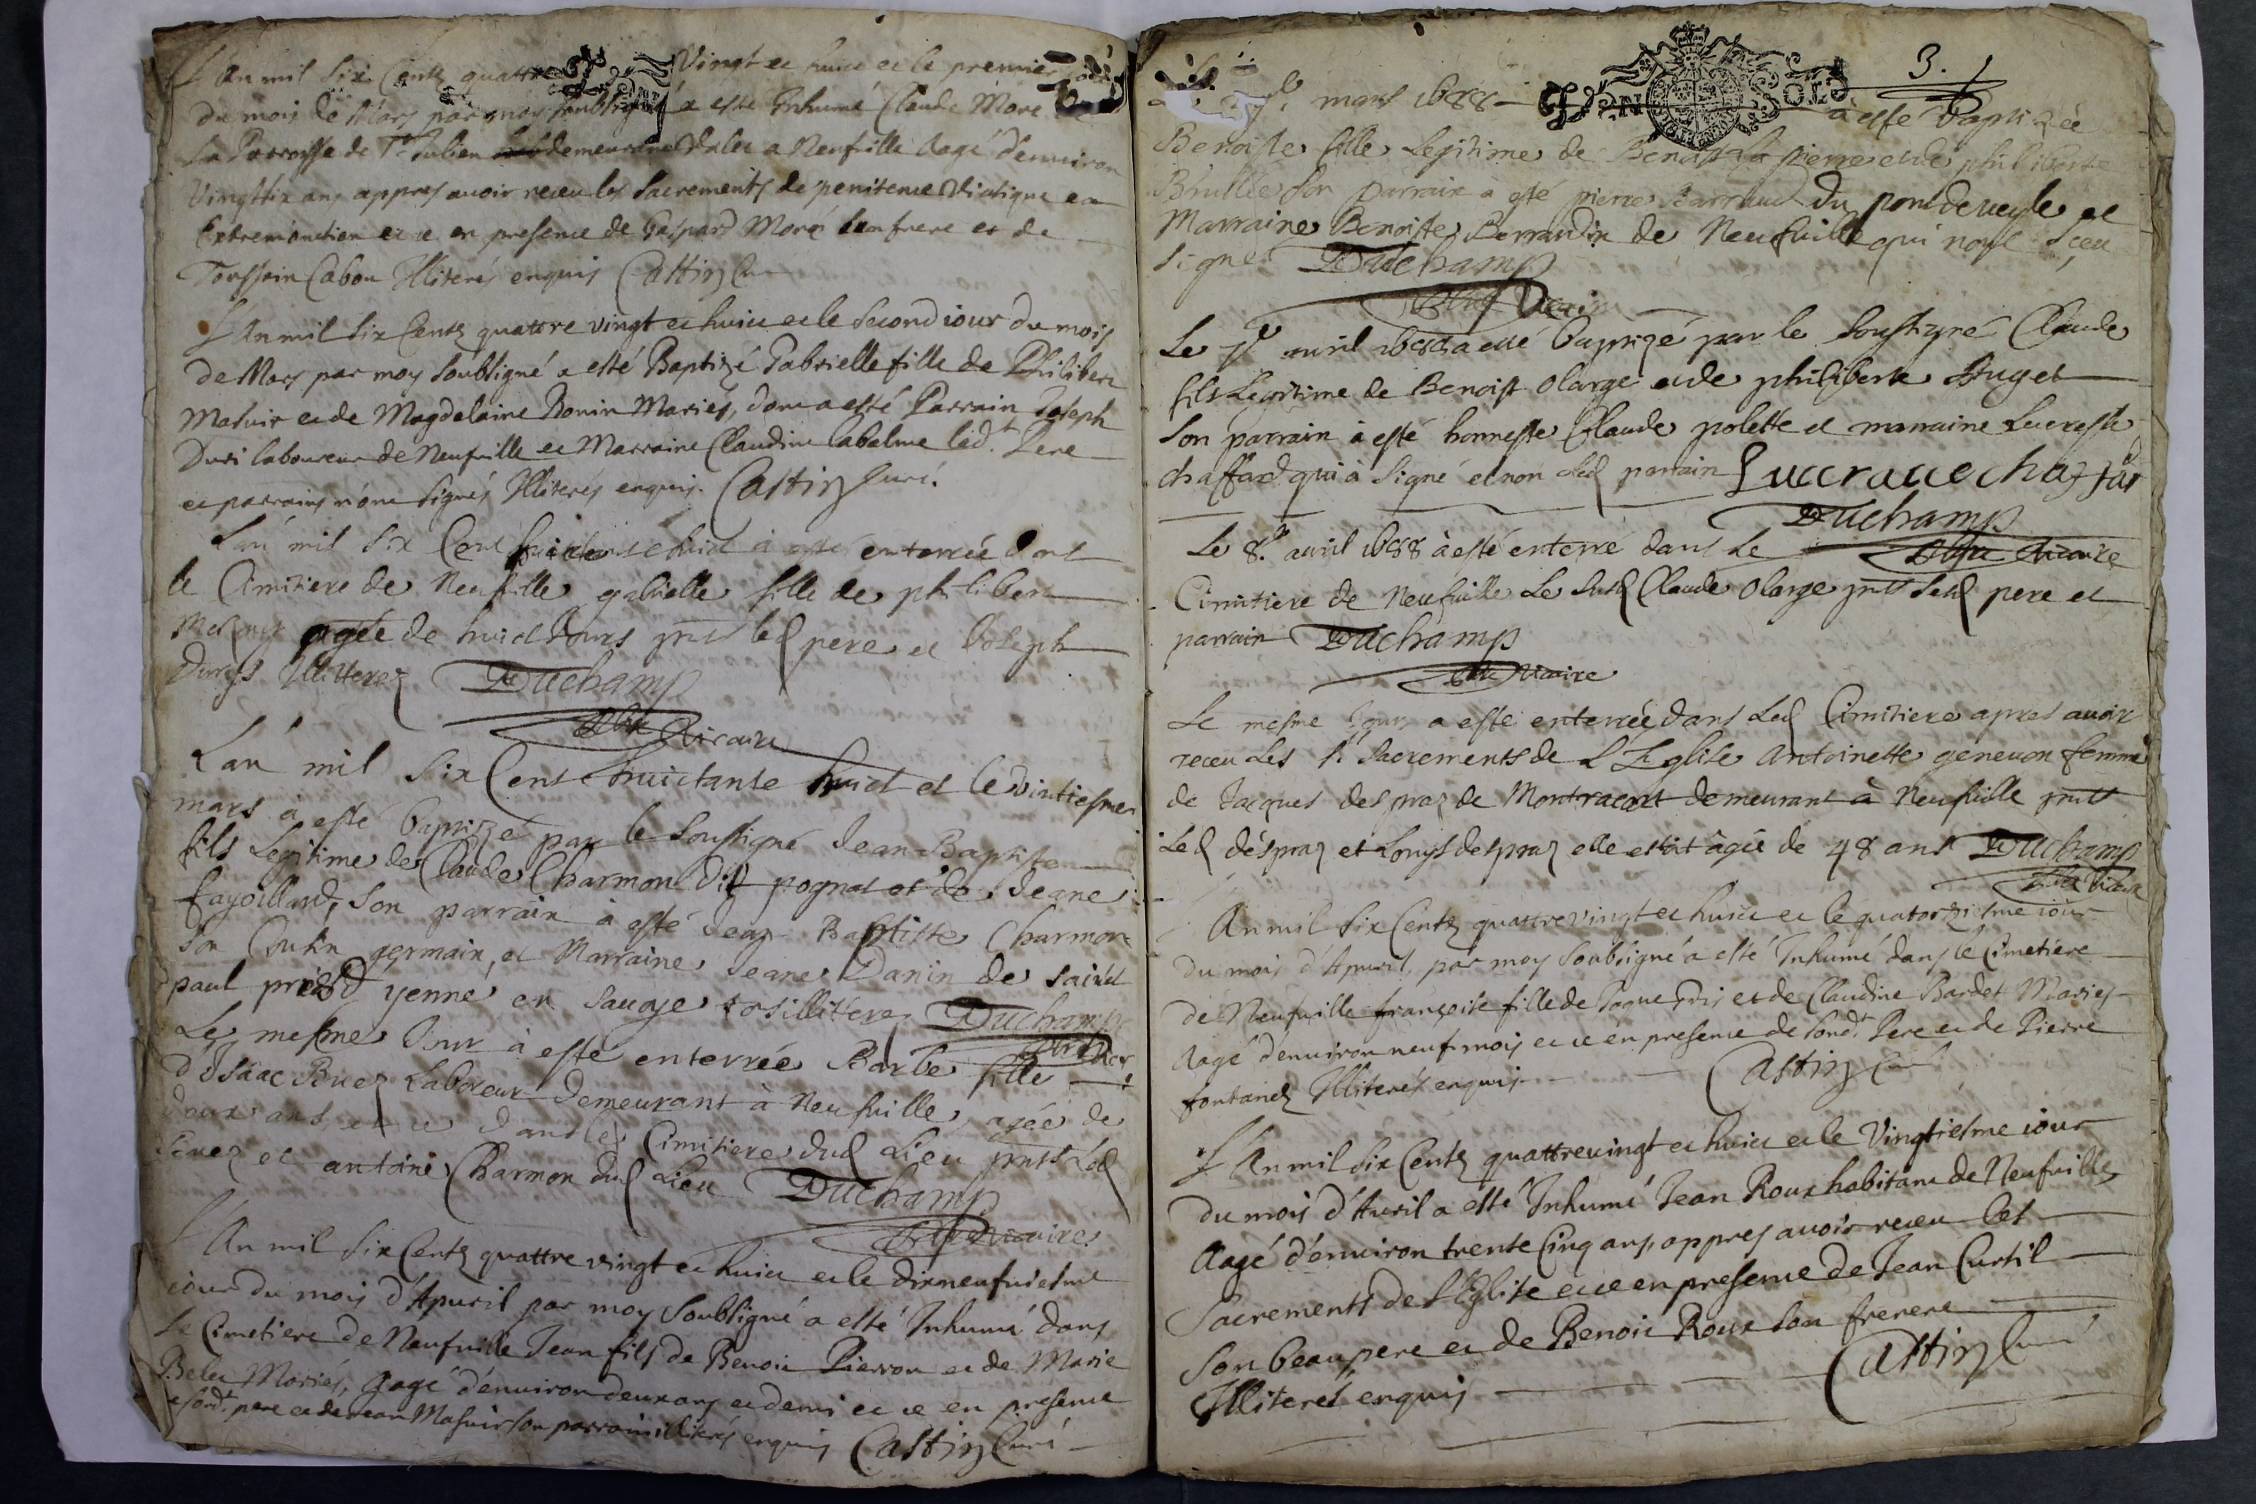 L'An mil six Cents quattre Vingt et huict et le premier
du mois de Mars par moy soubsigné a esté Inhumé Claude More
La Parroisse de St Julien demeurant valet a Neufville Aagé d'environ
Vingt six ans appres avoir receu les Sacrements de penitence Viatique et
Extremonction et ce en presence de Gaspard Moré son frere et de
Toussain Cabou Illiterés enquis Castin Curé
L'An mil six Cents quattre vingt et huict et le second iour du mois
de Mars par moy soubsigné a esté Baptizé Gabrielle fille de Philibert
Mafuir et de Magdelaine Bonin Mariés, dont a esté Parrain Joseph
Duri laboureur de Neufville et Marraine Claudine Labalme led.t Pere
et parrains n'ont signés Illiterés enquis. Castin Curé.
L'an mil six Cent huictante huict à esté enterrée dans
le Cimitiere de Neufville gabrielle fille de philibert
agée de huict Jours pnts led pere et Joseph
Durys Illitterez Duchamp
Vicaire
L'an mil six Cent huictante huict et le vintiesme
mars à esté baptizé par le soussigné Jean Baptiste
fils Legitime de Claude Charmon dit pognat et de Jeane
fayolland, son parrain à esté Jean Baptiste Charmon
son Cusin germain, et Marraine Jeane Danin de saint
paul près d yenne en Savoye tous illiterez Duchamp
Le mesme Jour à esté enterrée Barbe fille
d'Isaac Buez Laboreur demeurant à Neufville, agée de
deux ans, et ce dans le Cimitiere dud Lieu pnts Led
Buez et antoine Charmon dud Lieu Duchamp
Vicaire
L'An mil six Cents quattre vingt et huict et le dixneufviesme
iour du mois d'Apuril par moy soubsigné a esté Inhumé dans
le Cimetiere de Neufville Jean fils de Benoit Pierron et de Marie
Belet Mariés, Aagé d'environ deux ans et demi et ce en presence
de sond.t pere et de Jean Mafuir son parrain illiterés enquis Castin Curé
3.
mars 1688 à esté baptizée
Benoiste fille Legitime de Benoist La pierre et de philiberte
Brullée son parrain a esté pierre Barraud du pondeveyle et
Marraine Benoiste Berraudin de Neufville qui n'ont sceu
signer Duchamp
Vicaire
Le avril 1688 a esté baptizé par le soussigné Claude
fils Legitime de Benoist Olarge et de philiberte Huget
son parrain à esté honneste Claude polette et marraine Lucresse
chaffard qui à signé et non led parrain Luccrauechaffar
Duchamp
Le 8.e avril 1688 à esté enterré dans Le Vicaire
Cimitiere de Neufville Le susd Claude Olarge pnts sesd pere et
parrain Duchamp
Vicaire
Le mesme Jour a esté enterrée dans Led Cimitiere apres avoir
receu Les Sts Sacrements de L Eglise Antoinette genevon femme
de Jacques despraz de Montracort demeurant à Neufville pnts
Led despraz et Louys despraz elle estoit âgée de 48 ans Duchamp
Vicaire
L'An mil six Cents quattre vingt et huict et le quatorziesme iour
du mois d'Apuril, par moy soubsigné a esté Inhumé dans le Cimetiere
de Neufville françoise fille de Jaque Gris et de Claudine Bardet Mariés
Aagé d'environ neuf mois et ce en presence de sond.t Pere et de Pierre
fontanel Illiterés enquis Castin Curé
L'An mil six Cents quattre vingt et huict et le Vingtiesme iour
du mois d'Auril a esté Inhumé Jean Roux habitant de Neufville
Aagé d'environ trente Cinq ans, appres avoir receu les
Sacrements de l'Eglise et ce en presence de Jean Curtil
son beaupere et de Benoit Roux son frerere
Illiterés enquis Castin Curé